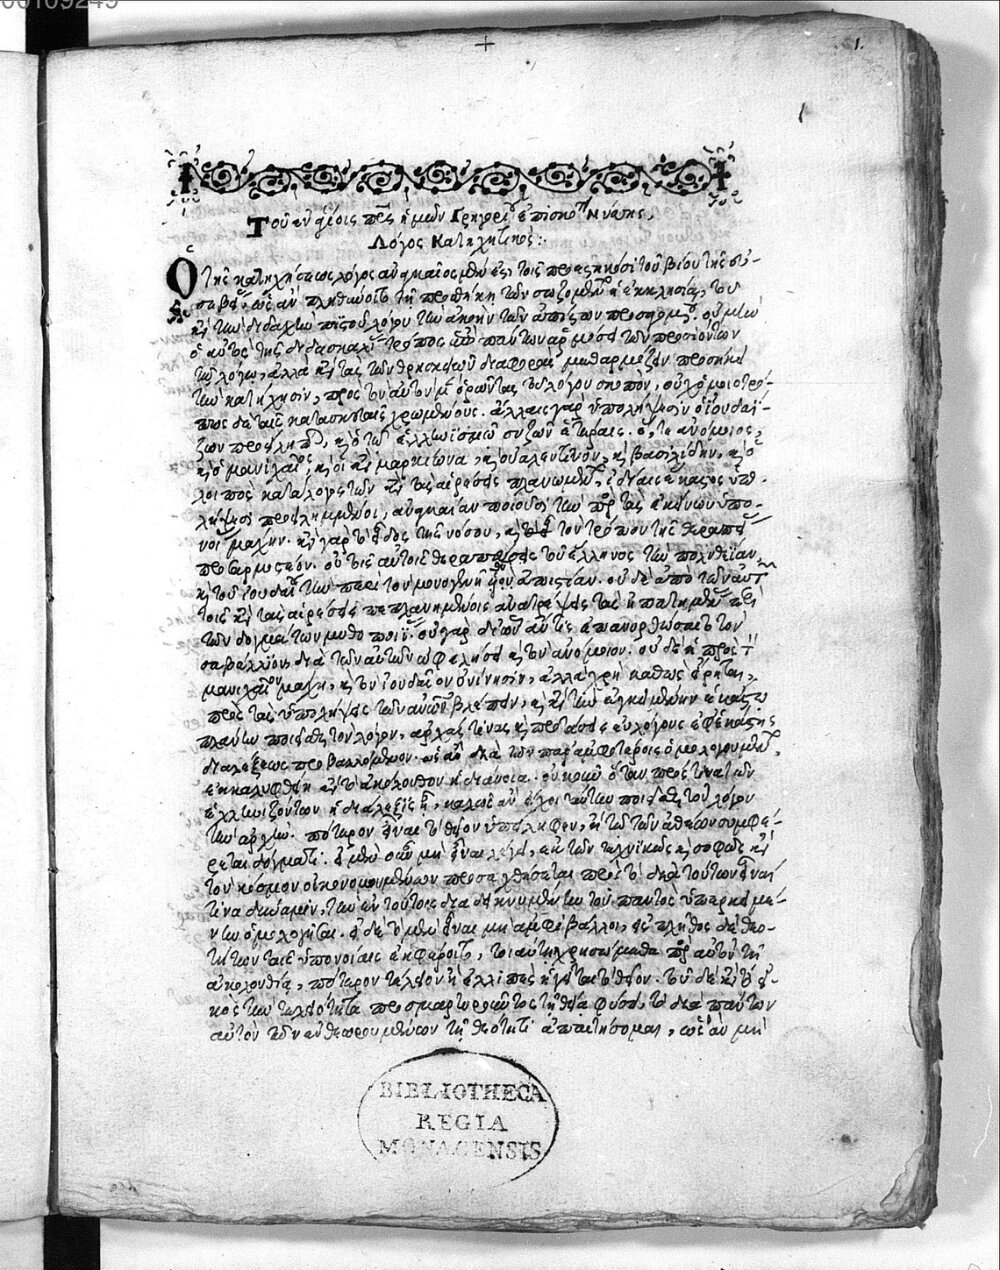 00109249
1.
1
Τοῦ ἐν ἁγίοις πρς ἡμῶν Γρηγορίου ἐπισκόπου Νύσης,
Λόγος Κατηχητικός:
Ὁ τῆς κατηχήσεως λόγος ἀναγκαῖος μέν ἐστι, τοῖς προεστηκόσι τοῦ βίου τῆς εὐ-
σεβείας· ὡς ἂν πληθύνοιτο τῇ προσθήκῃ τῶν σωζομένων ἡ ἐκκλησία, τοῦ
κατὰ τὴν διδαχὴν πιστοῦ λόγου τὴν ἀκοὴν τῶν ἀπίστων προσαγομένου. οὐ μὴν
ὁ αὐτὸς τῆς διδασκαλίας τρόπος ἐπὶ πάντων ἁρμόσει τῶν προσιόντων
τῷ λόγῳ, ἀλλὰ κατὰ τὰς τῶν θρησκειῶν διαφορὰς μεθαρμόζειν προσήκει
τὴν κατήχησιν, πρὸς τὸν αὐτὸν μὲν ὁρῶντας τοῦ λόγου σκοπὸν, οὐχ ὁμοιοτρό-
πως δὲ ταῖς κατασκευαῖς χρωμένους. ἄλλαις γὰρ ὑπολήψεσιν ὁ ἰουδαΐ-
ζων προσείληπται, καὶ ὁ τῷ ἑλληνισμῷ συζῶν ἑτέραις. ὅ, τε ἀνόμοιος,
καὶ ὁ μανιχαῖος, καὶ οἱ κατὰ μαρκίωνα, καὶ οὐαλεντῖνον, καὶ βασιλίδην, καὶ ὁ
λοιπὸς κατάλογος τῶν κατὰ τὰς αἱρέσεις πλανωμένων, ἰδίαις ἕκαστος ὑπο-
λήψεσι προειλημμένοι, ἀναγκαίαν ποιοῦσι τὴν πρὸς τὰς ἐκείνων ὑπο-
νοίας μάχην. κατὰ γὰρ τὸ εἶδος τῆς νόσου, καὶ τὸν τρόπον τῆς θεραπείας
προσαρμοστέον. οὐ τοῖς αὐτοῖς θεραπεύσεις τοῦ ἕλληνος τὴν πολυθεΐαν
καὶ τοῦ ἰουδαίου τὴν περὶ τὸν μονογενῆ θεὸν ἀπιστίαν. οὐδὲ ἀπὸ τῶν αὐτῶν
τοῖς κατὰ τὰς αἱρέσεις πεπλανημένοις ἀνατρέψεις τὰς ἠπατημένας περὶ
τῶν δογμάτων μυθοποιΐας· οὐ γὰρ δι' ὧν ἄν τις ἐπανορθώσαιτο τὸν
σαβέλλιον, διὰ τῶν αὐτῶν ὠφελήσει καὶ τὸν ἀνόμοιον. οὐδὲ ἡ πρὸς τὸν
μανιχαῖον μάχη, καὶ τὸν ἰουδαῖον ὀνίνησιν, ἀλλὰ χρὴ καθὼς εἴρηται,
πρὸς τὰς ὑπολήψεις τῶν ἀνθρώπων βλέπειν, καὶ κατὰ τὴν ἐγκειμένην ἑκάστῳ
πλάνην ποιεῖσθαι τὸν λόγον, ἀρχάς τινας καὶ προτάσεις εὐλόγους ἐφ' ἑκάστης
διαλέξεως προβαλλόμενον. ὡς ἂν διὰ τῶν παρ' ἀμφοτέροις ὁμολογουμένων,
ἐκκαλυφθείη κατὰ τὸ ἀκόλουθον ἡ διάνοια. οὐκοῦν ὅταν πρός τινα τῶν
ἑλληνιζόντων ἡ διάλεξις ᾖ, καλῶς ἂν ἔχοι ταύτην ποιεῖσθαι τοῦ λόγου
τὴν ἀρχήν. πότερον εἶναι τὸ θεῖον ὑπείληφεν, ἢ τῷ τῶν ἀθέων συμφέ-
ρεται δόγματι. εἰ μὲν οὖν μὴ εἶναι λέγει, ἐκ τῶν τεχνικῶς καὶ σοφῶς κατὰ
τὸν κόσμον οἰκονομουμένων προσαχθήσεται πρὸς τὸ διὰ τούτων εἶναί
τινα δύναμιν, τὴν ἐν τούτοις διαδεικνυμένην τοῦ παντὸς ὑπερκειμέ-
νην ὁμολογῆσαι. εἰ δὲ τὸ μὲν εἶναι μὴ ἀμφιβάλλοι, εἰς πλῆθος δὲ θεο-
τήτων ταῖς ὑπονοίαις ἐκφέροιτο, τοιαύτῃ χρησώμεθα πρὸς αὐτὸν τῇ
ἀκολουθίᾳ, πότερον τέλειον ἢ ἐλλιπὲς ἡγεῖται τὸ θεῖον. τοῦ δὲ κατὰ τὸ εἰ-
κὸς τὴν τελειότητα προσμαρτυροῦντος τῇ θείᾳ φύσει, τὸ διὰ πάντων
αὐτὸν τῶν ἐνθεωρουμένων τῇ θεότητι ἀπαιτήσομεν, ὡς ἂν μὴ
BIBLIOTHECA
REGIA
MONACENSIS